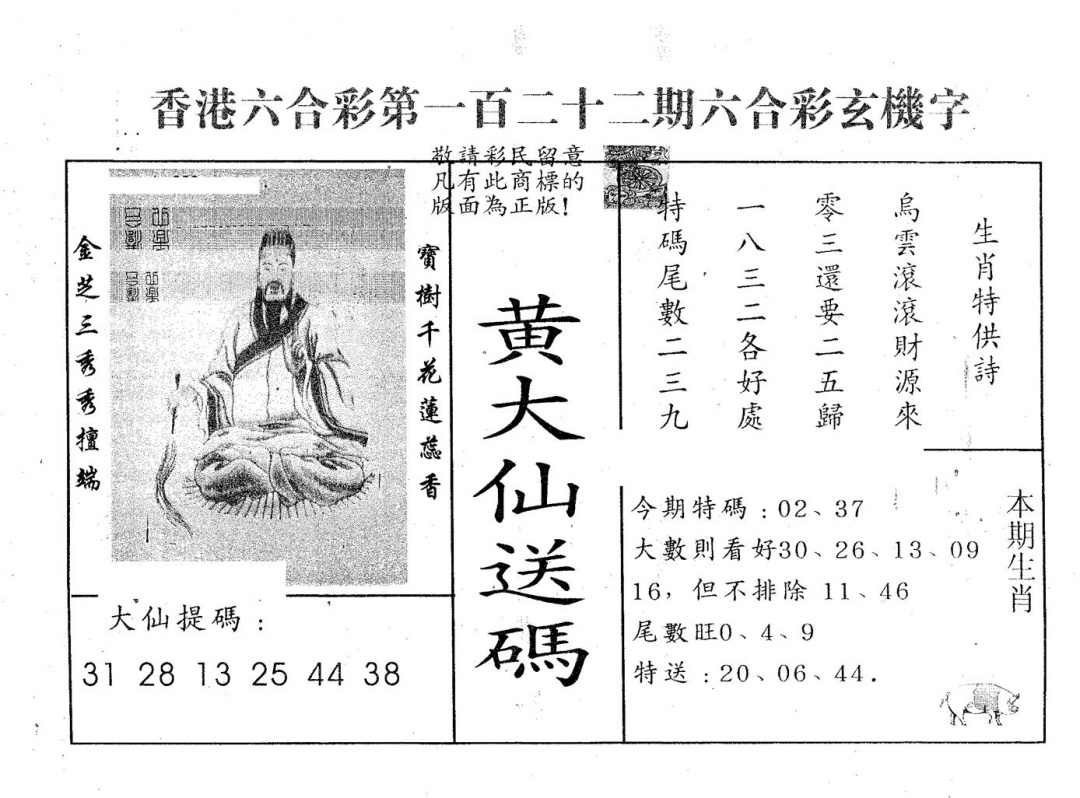 香港六合彩第一百二十二期六合彩玄機字
敬請彩民留意
凡有此商標的
版面為正版!
生肖特供詩
烏雲滾滾財源來
零三還要二五歸
一八三二各好處
特碼尾數二三九
黄大仙送碼
寶樹千花蓮蕊香
金芝三秀秀擅端
大仙提碼：
31 28 13 25 44 38
本期生肖
今期特碼：02、37
大數則看好30、26、13、09
16，但不排除 11、46
尾數旺0、4、9
特送：20、06、44.